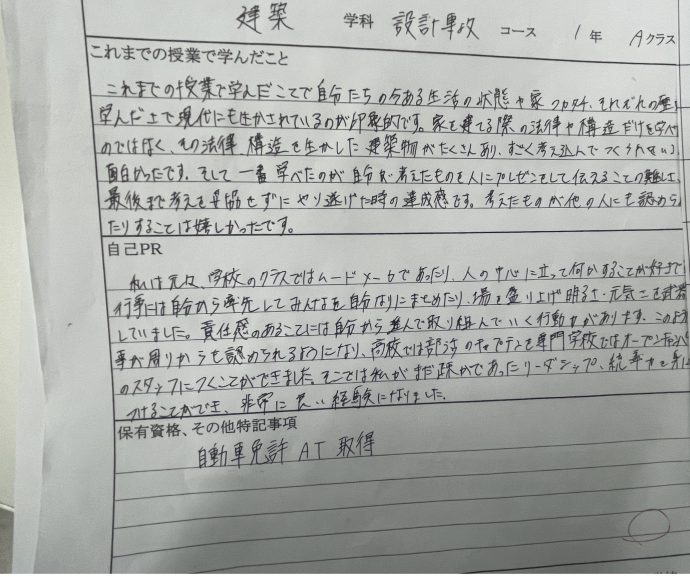 建築 学科 設計専攻 コース 1年 Aクラス
これまでの授業で学んだこと
これまでの授業で学んだことで自分たちの今ある生活の状態や家のカタチ、それぞれの歴
学んだ上で現代にも生かされているのが印象的です。家を建てる際の法律や構造だけを学べ
のではなく、その法律、構造を生かした建築物がたくさんあり、すごく考え込んでつくられている
面白かったです。そして一番学べたのが自分が考えたものを人にプレゼンをして伝えることの難しさ、
最後まで考えを妥協せずにやり遂げた時の達成感です。考えたものが他の人にも認めら
たりすることは嬉しかったです。
自己PR
私は元々、学校のクラスではムードメーカーであったり、人の中心に立って何かすることが好きで
行事には自分から率先してみんなを自分なりにまとめたり、場を盛り上げ明るさ・元気さを武器
していました。責任感のあることには自分から進んで取り組んでいく行動力があります。このよう
事が周りからも認められるようになり、高校では部活のキャプテンを専門学校ではオープンキャンパ
のスタッフにつくことができました。そこでは私がまだ疎かであったリーダシップ、統率力を身に
つけることができ、非常に良い経験になりました。
保有資格、その他特記事項
自動車免許 AT 取得